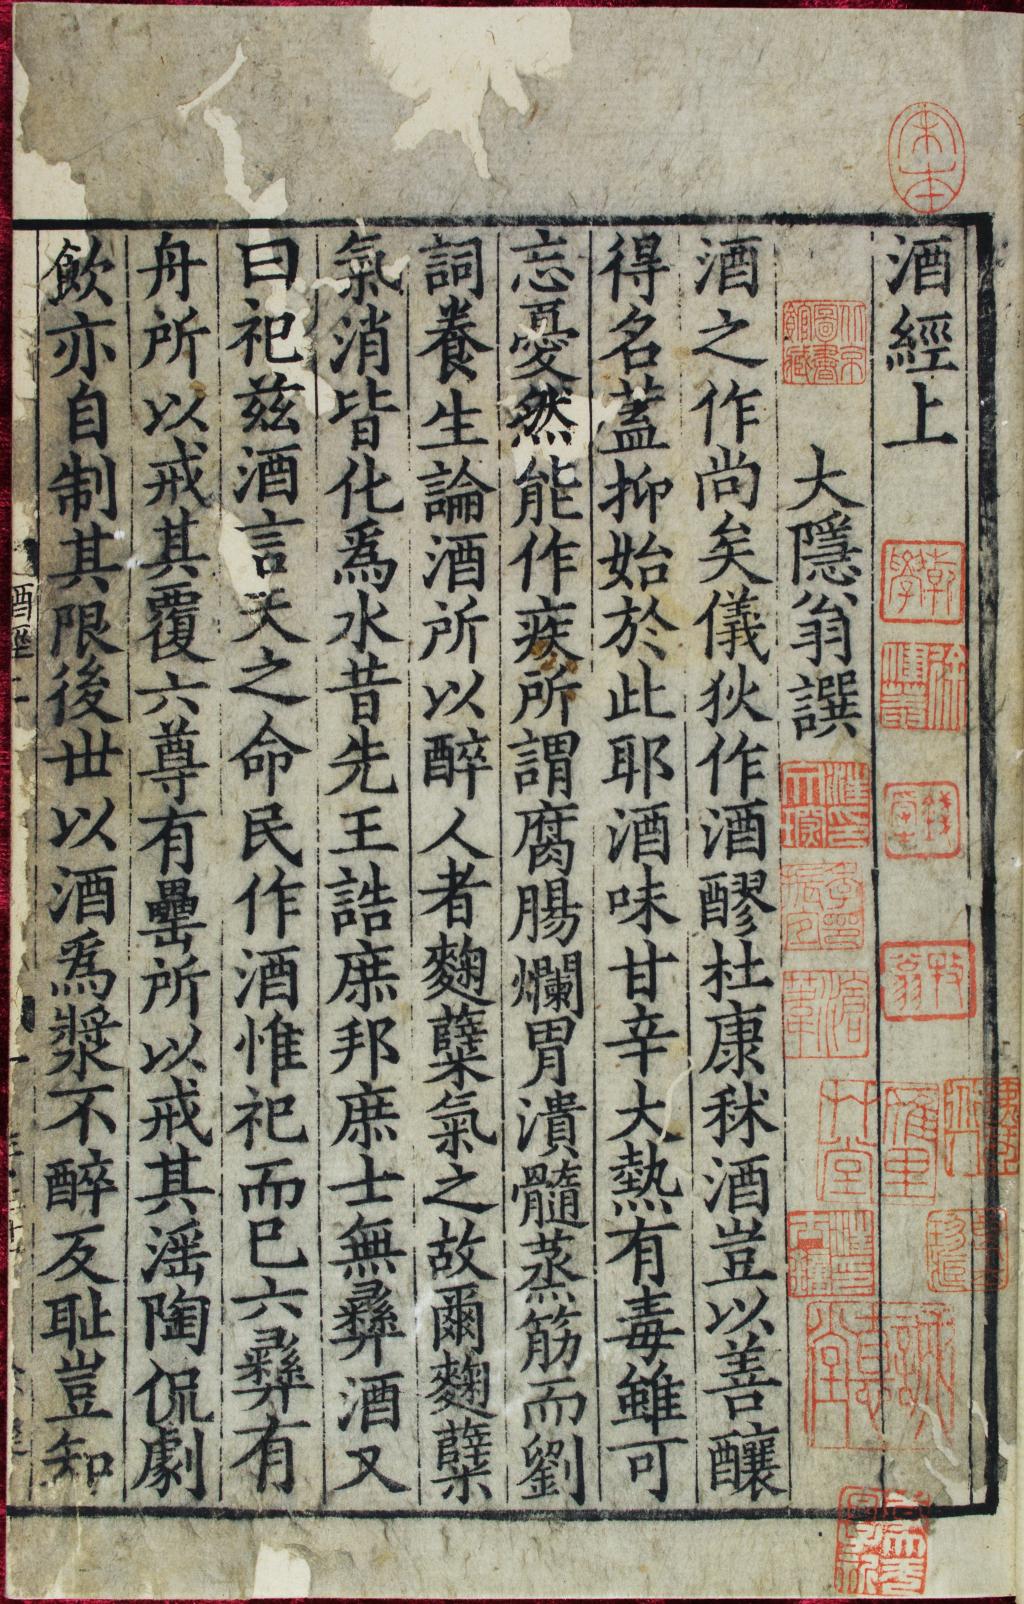 酒經上
大隱翁譔
酒之作尚矣儀狄作酒醪杜康秫酒豈以善釀
得名蓋抑始於此耶酒味甘辛大熱有毒雖可
忘憂然能作疾所謂腐腸爛胃潰髓蒸筋而劉
詞養生論酒所以醉人者麴糵氣之故爾麴糵
氣消皆化爲水昔先王誥庶邦庶士無彝酒又
曰祀茲酒言天之命民作酒惟祀而已六彝有
舟所以戒其覆六尊有罍所以戒其淫陶侃劇
飲亦自制其限後世以酒爲漿不醉反恥豈知
酒經